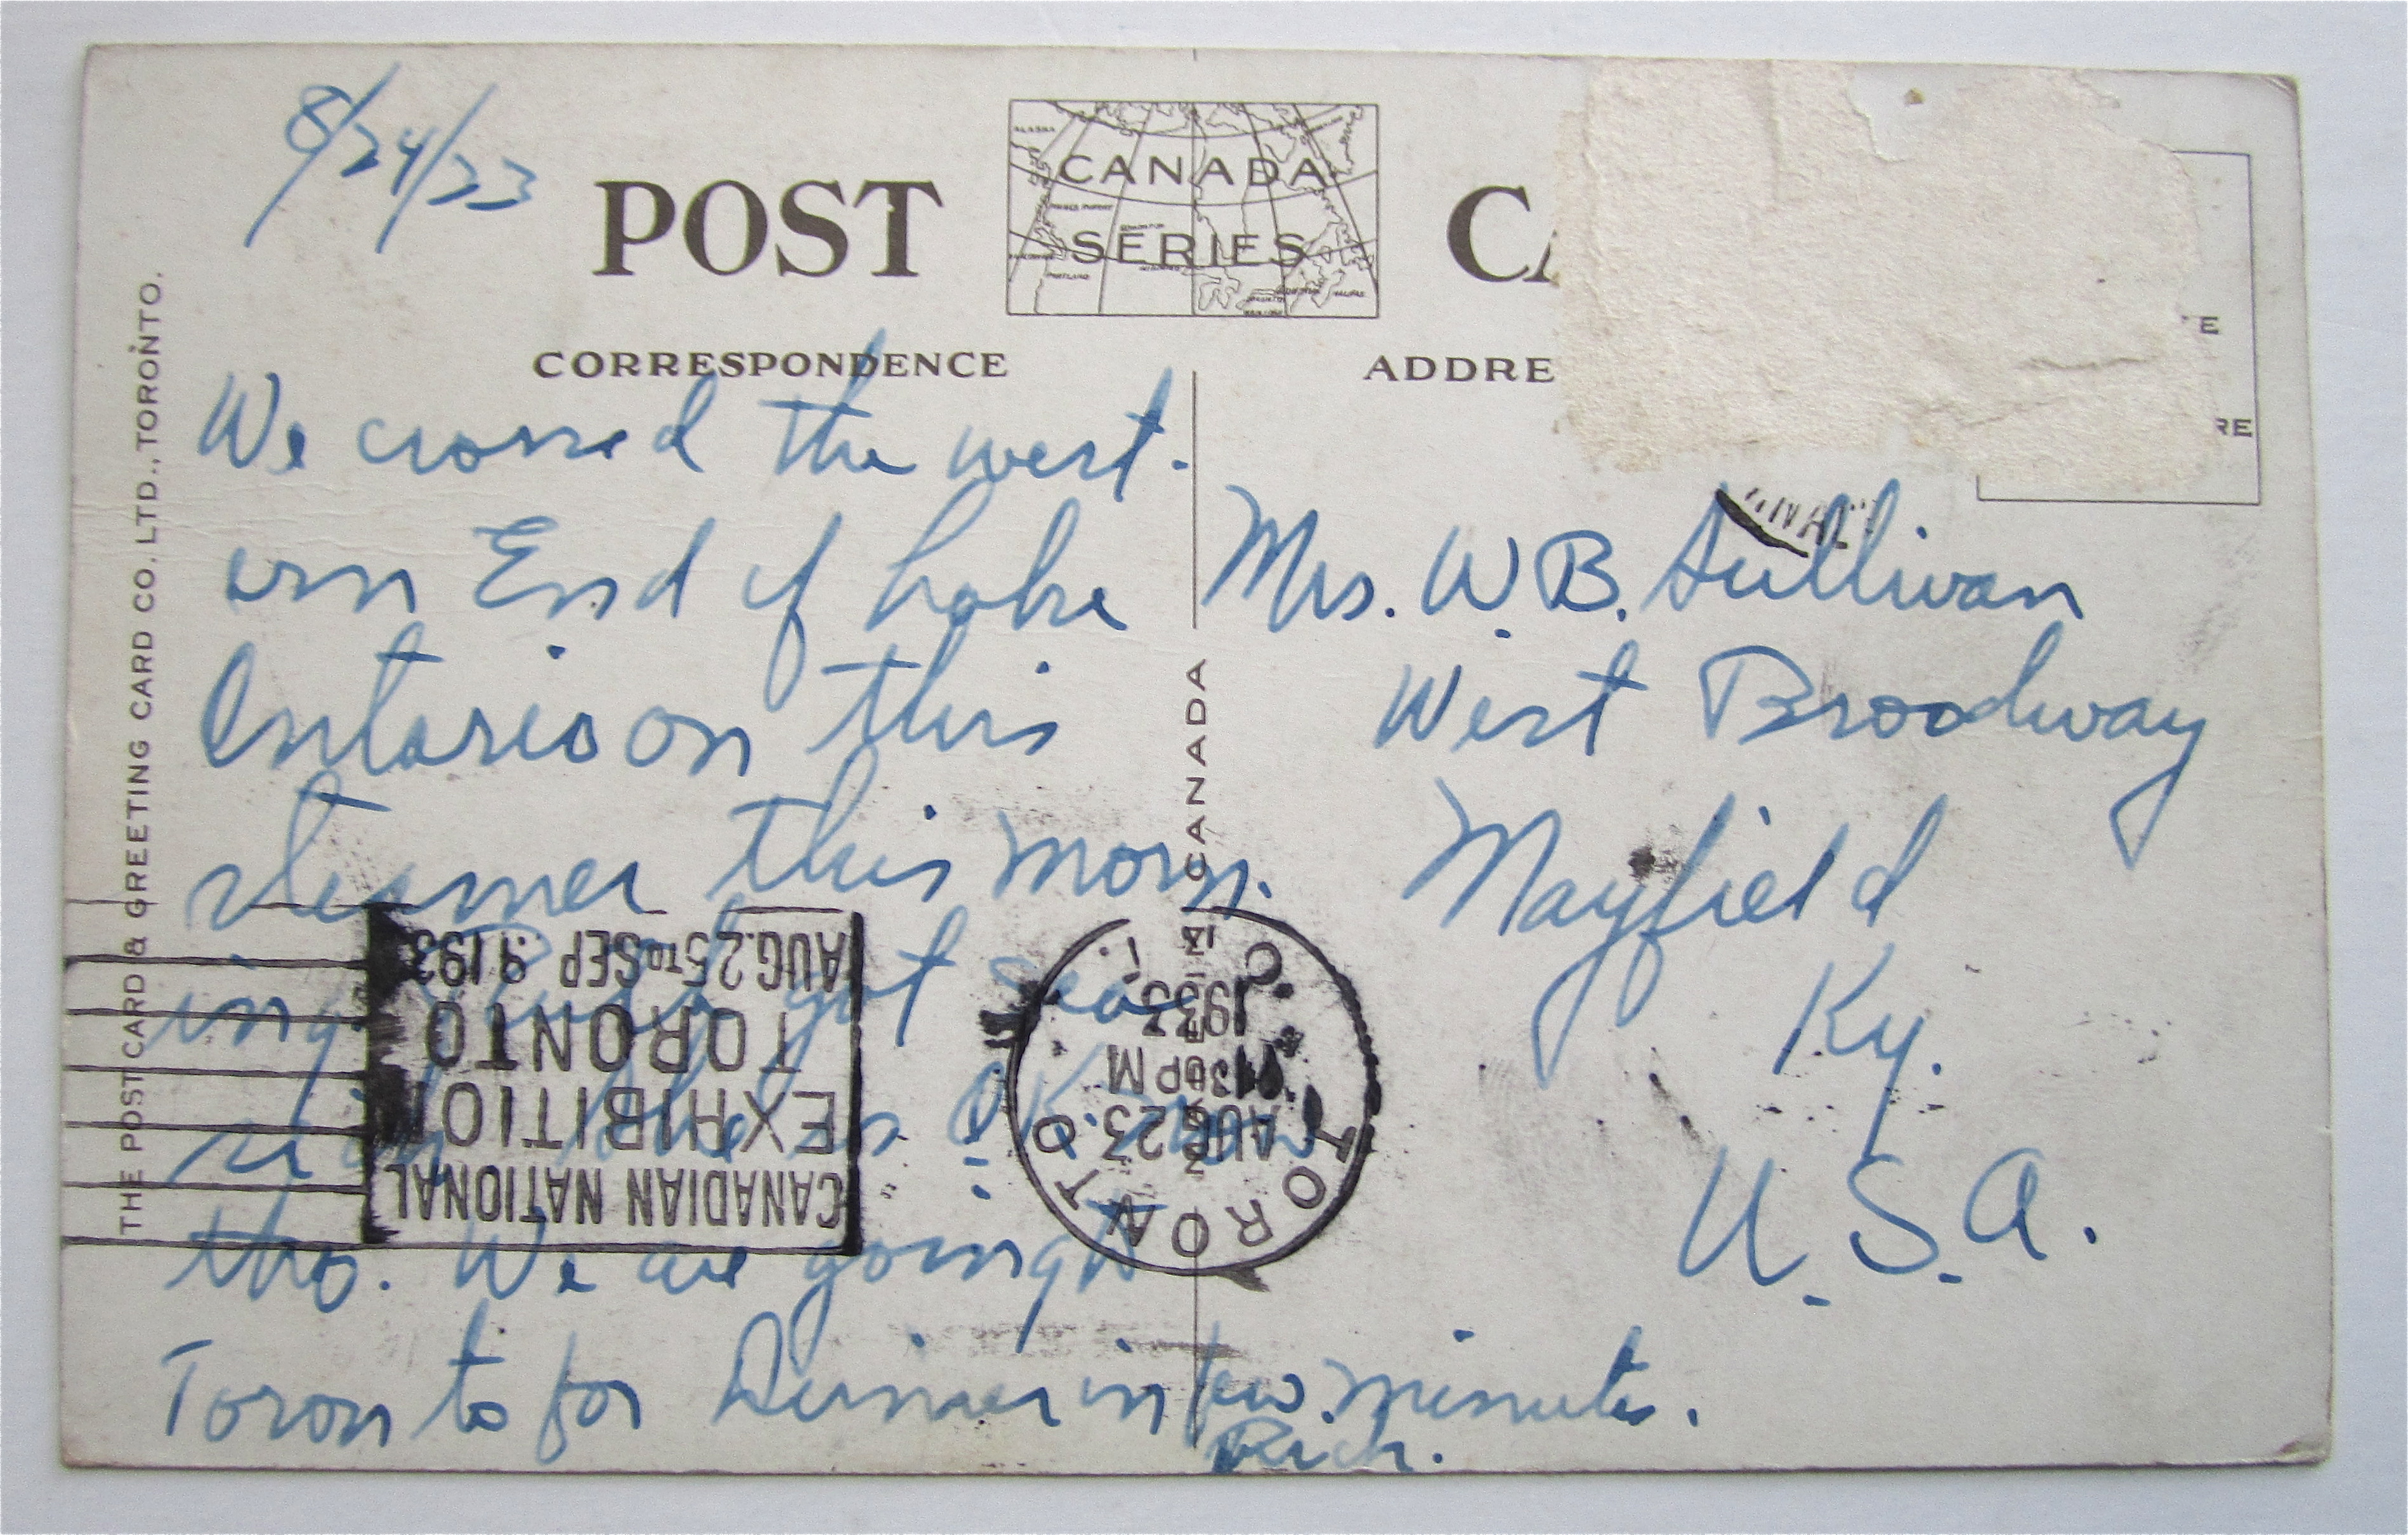 8/24/33
POST
CANADA
SERIES
CA
CORRESPONDENCE
ADDRE
E
RE
We crossed the west-
ern End of Lake
Ontario on this
steamer this morn-
ing got sea
sick is OK now
tho. We are going to
Toronto for Dinner in few minutes.
Rich.
Mrs. W. B. Sullivan
West Broadway
Mayfield
Ky.
U.S.A.
THE POSTCARD & GREETING CARD CO. LTD., TORONTO.
CANADA
TORONTO
AUG 23
30 PM
1933
CANADIAN NATIONAL
EXHIBITION
TORONTO
AUG. 25 TO SEP 9 193